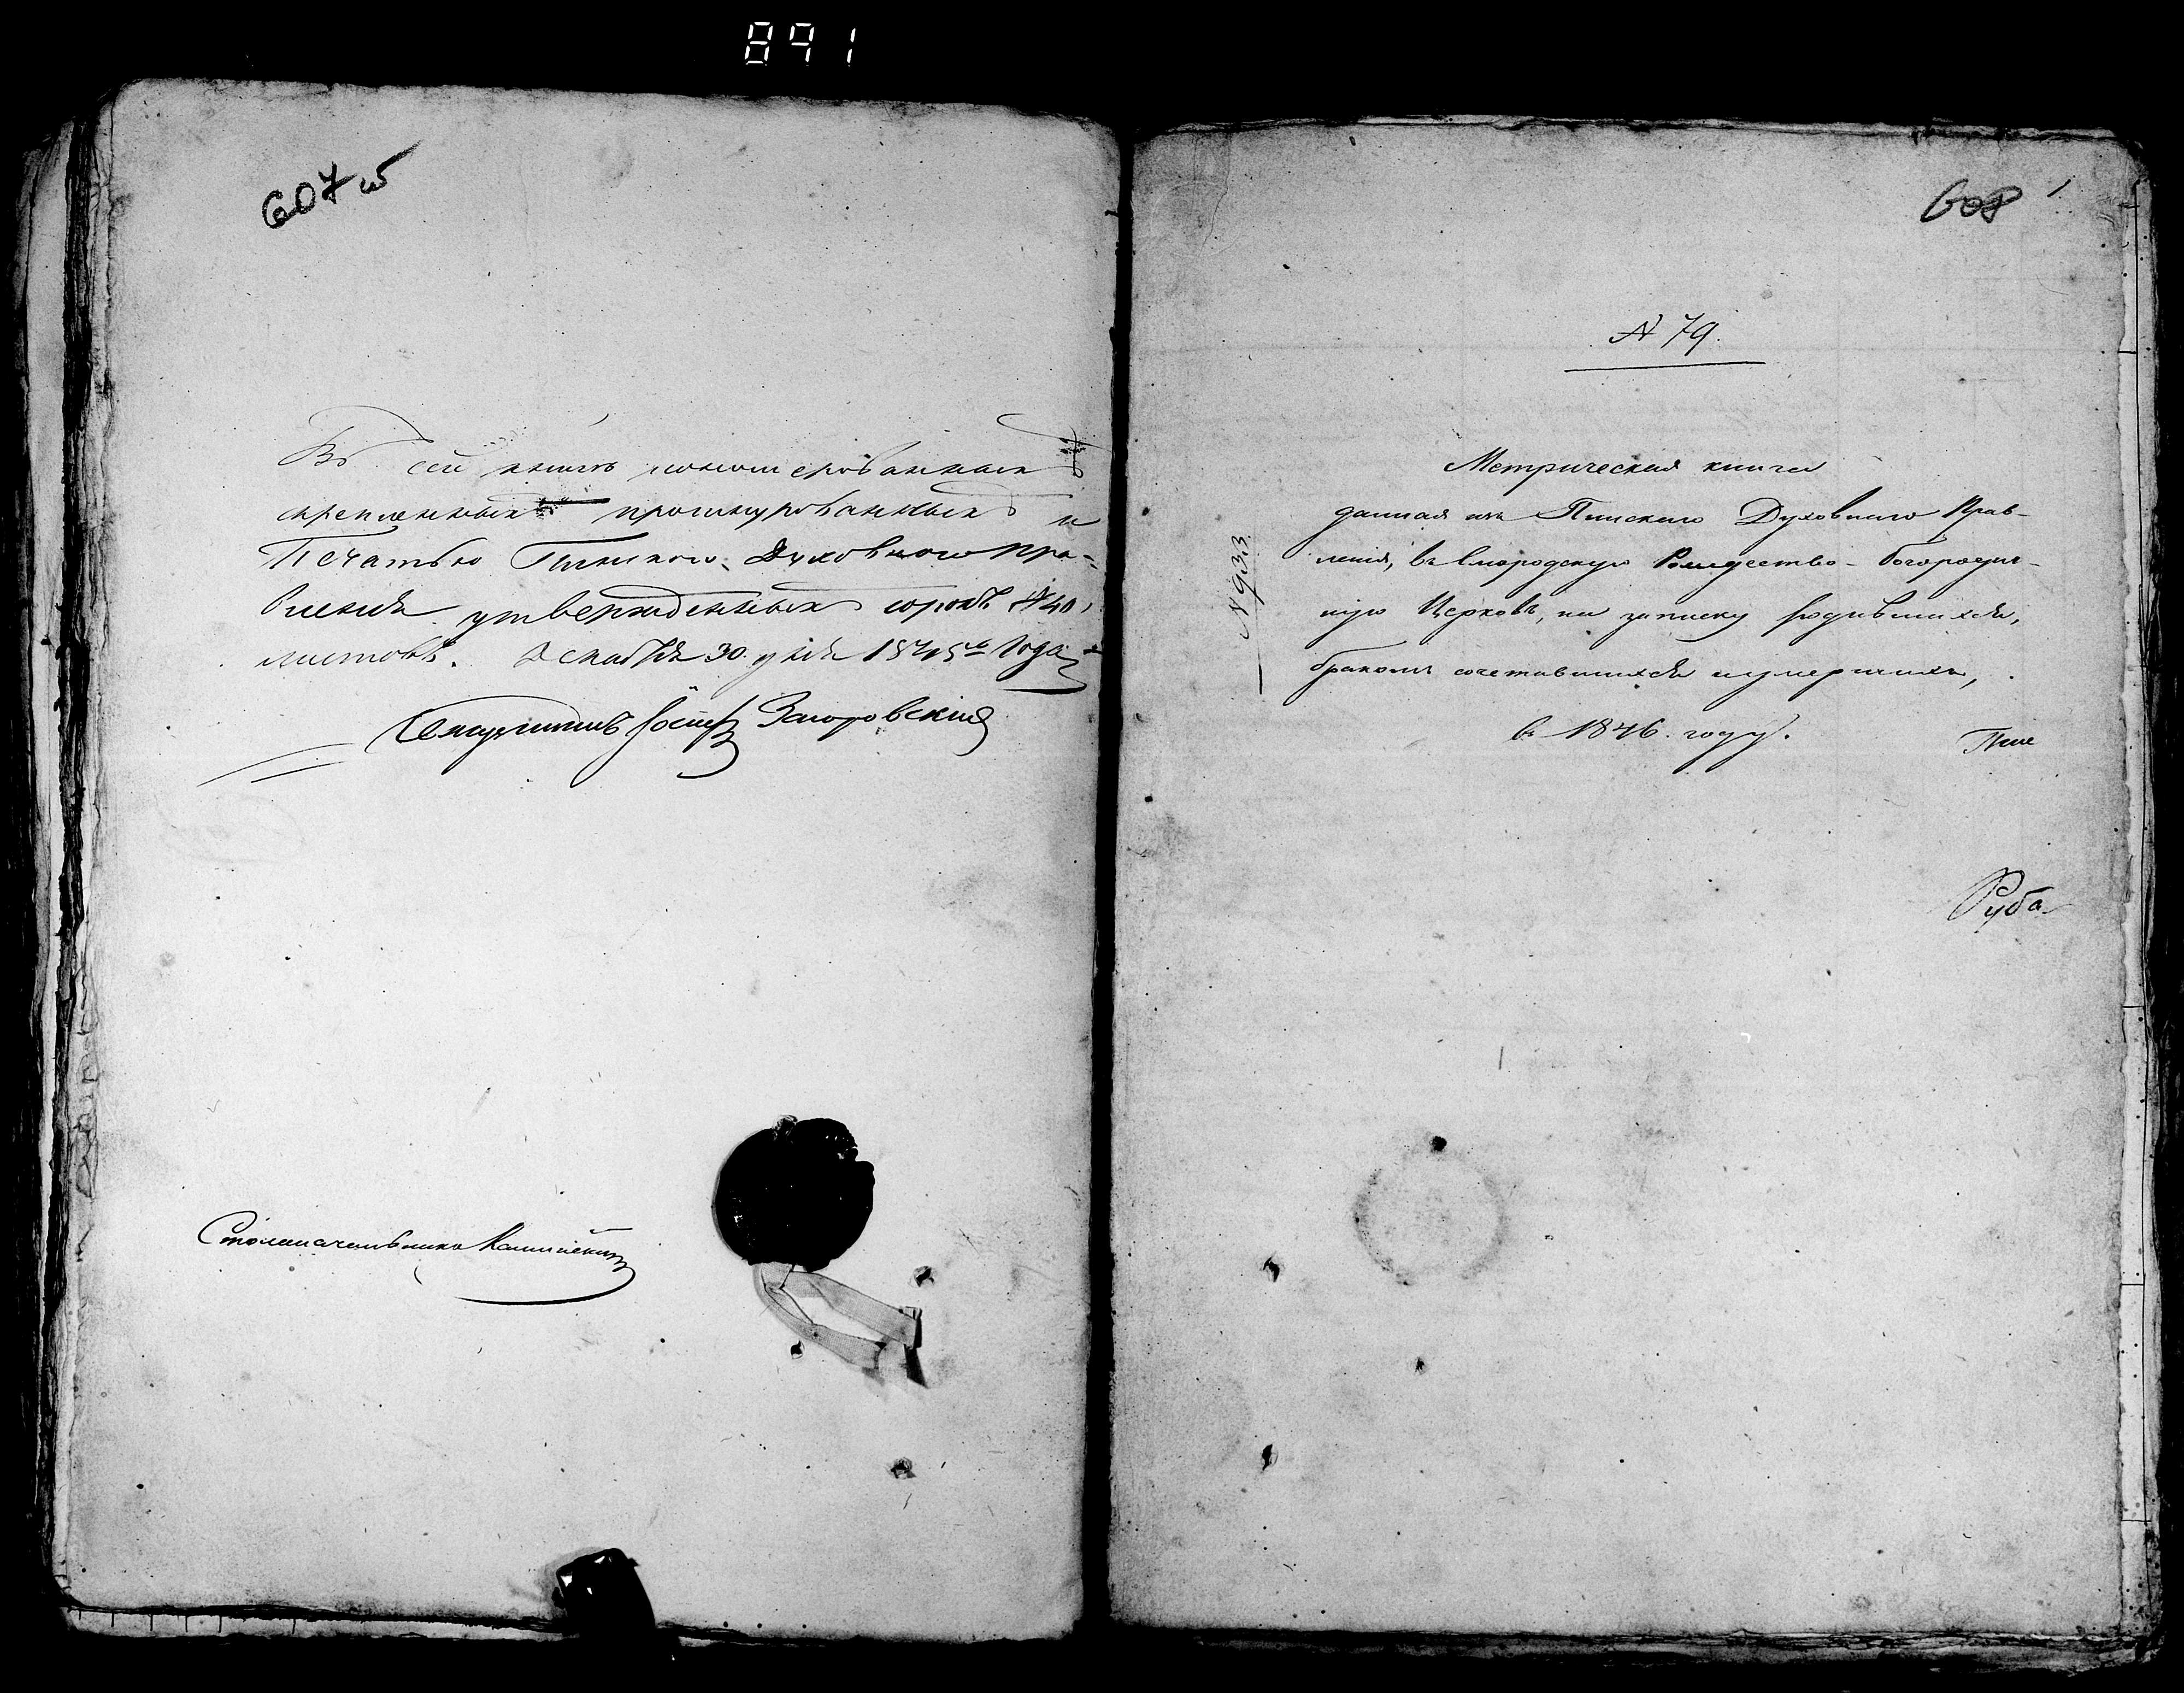 891
607 об
Въ сей книгѣ нономерованныхъ
скрепленныхъ прошнурованныхъ и
Печатью Пинскаго Духовного Пра-
вленія утвержденныхъ сорокъ #40,
листовъ. Декабря 30 дня 1845го Года
Іосиф Загоровскій
Столоначальникъ
608
1
N 79.
N 933
Метрическая книга
данная изъ Пинскаго Духовнаго Прав-
ленія, въ Смородскую Рождество-Богородич-
ную Церковь, на записку родившихся,
бракомъ сочетавшихся и умершихъ,
въ 1846 году.
Руба